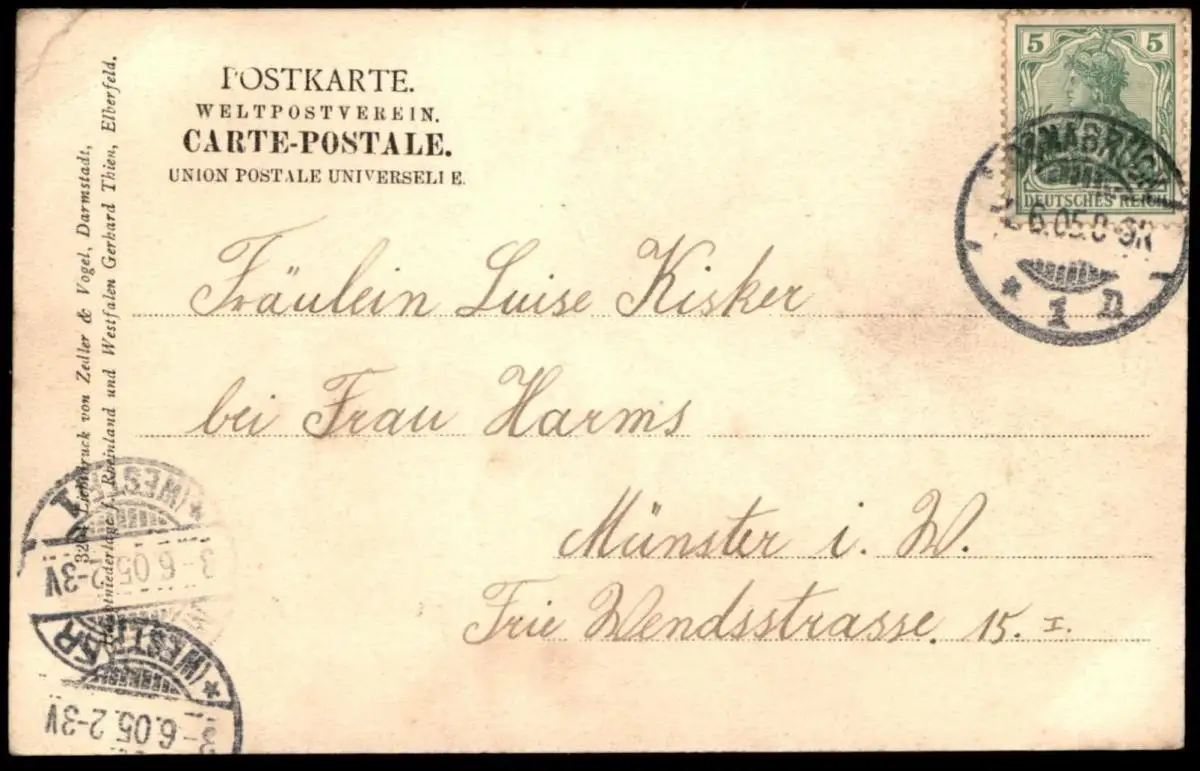 POSTKARTE.
WELTPOSTVEREIN.
CARTE-POSTALE.
UNION POSTALE UNIVERSELLE.
5 5
DEUTSCHES REICH
OSNABRÜCK
6.05.
* 1 n
Fräulein Luise Kisker
bei Frau Harms
Münster i. W.
Frie Wendsstrasse 15. I.
Lichtdruck von Zedler & Vogel, Darmstadt,
Hauptniederlage f. Rheinland und Westfalen Gerhard Thien, Elberfeld.
(WESTF.) 1
3-6.05.2-3V
(WESTF.)
6.05.2-3V